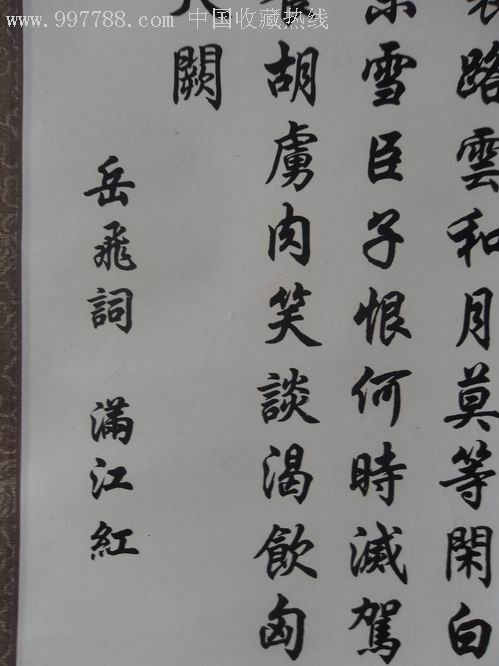 www.997788.com 中国收藏热线
路雲和月莫等閑白
雪臣子恨何時滅駕
胡虜肉笑談渴飲匈
闕
岳飛詞 滿江紅